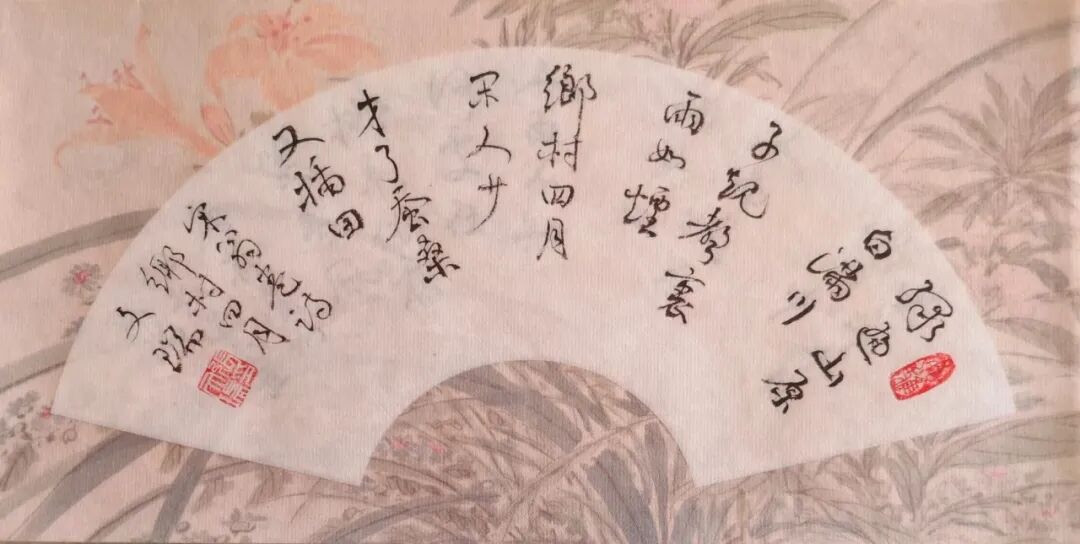 绿遍山原
白滿川
子规聲裏
雨如煙
鄉村四月
闲人少
才了蚕桑
又插田
宋翁卷诗
鄉村四月
文瑞